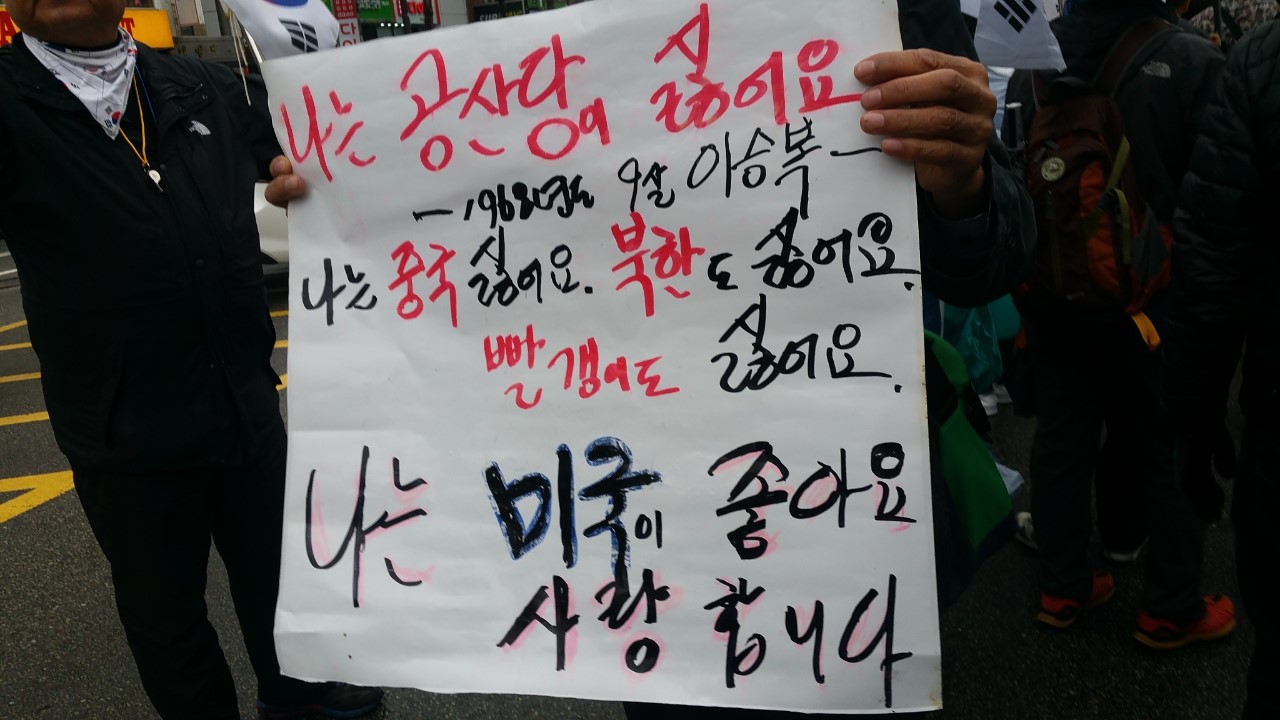 나는 공산당이 싫어요
ㅡ1968년도 9살 이승복ㅡ
나는 중국 싫어요. 북한도 싫어요.
빨갱이도 싫어요.
나는 미국이 좋아요
사랑합니다